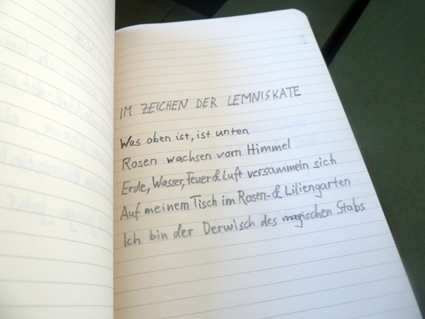 IM ZEICHEN DER LEMNISKATE
Was oben ist, ist unten
Rosen wachsen vom Himmel
Erde, Wasser, Feuer & Luft versammeln sich
Auf meinem Tisch im Rosen- & Liliengarten
Ich bin der Derwisch des magischen Stabs